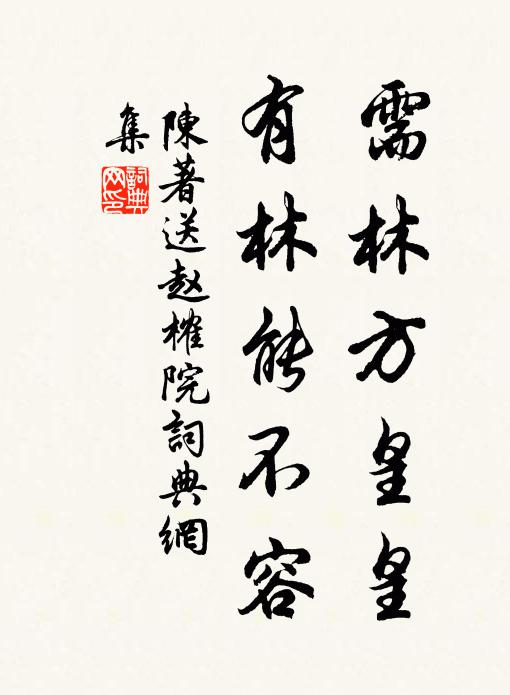 需林方皇皇
有林能不容
陳著送赵榷院詞典網
集
詞典網印